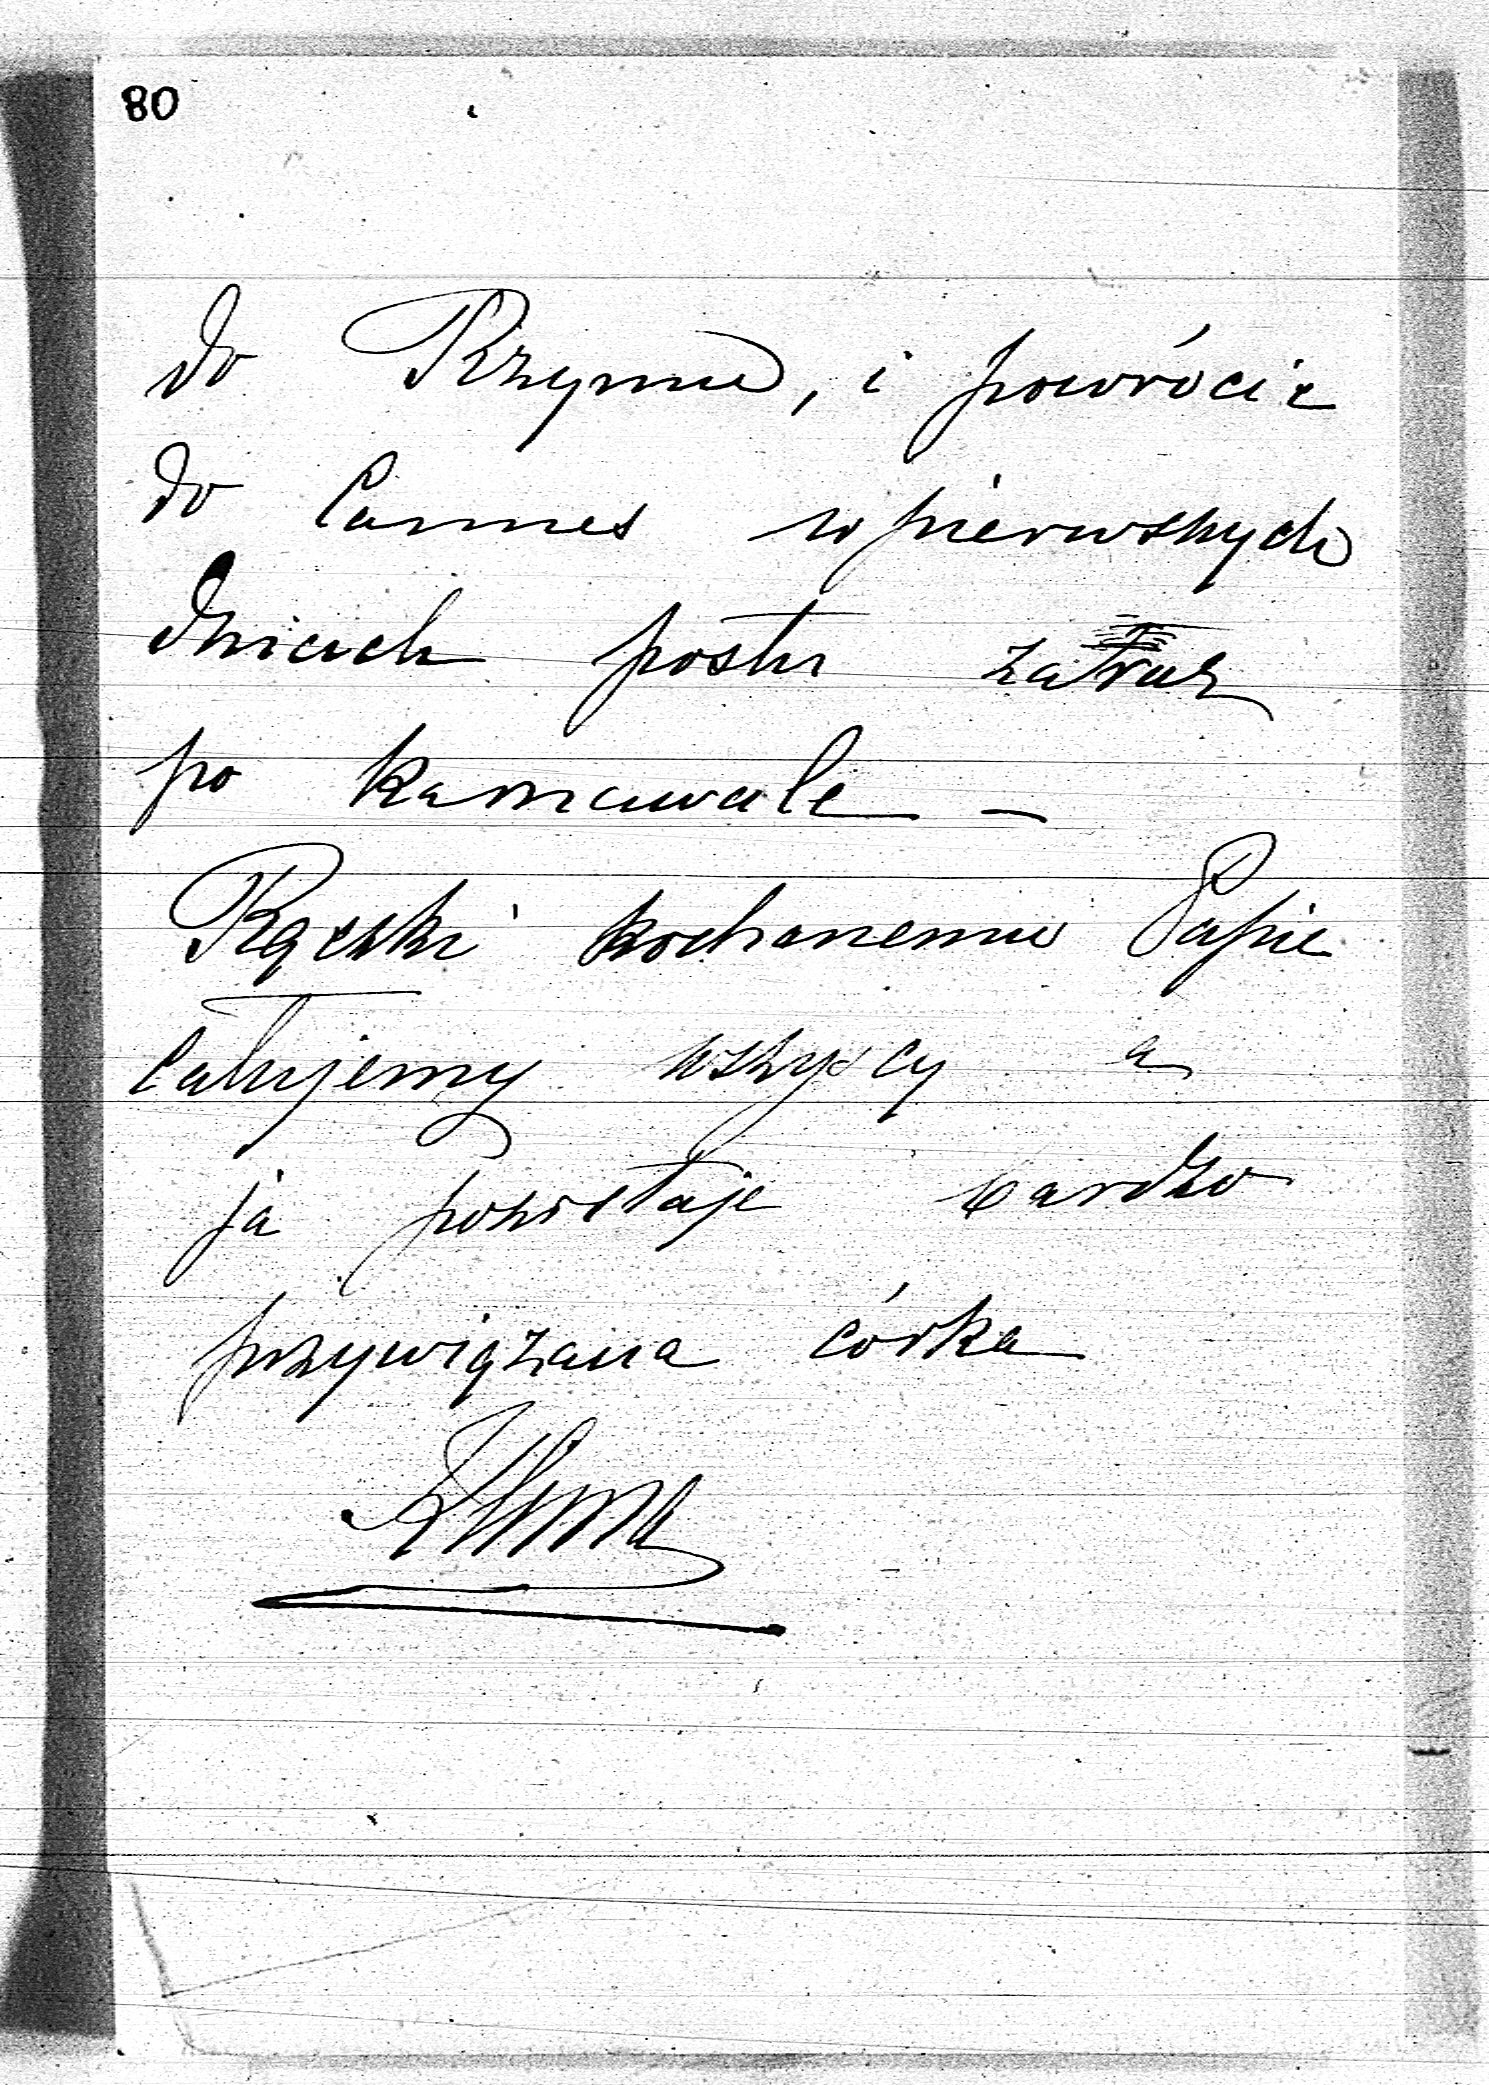 80
do Rzymu, i powrócić
do Cannes w pierwszych
dniach postu zaraz
po karnawale –
Rączki kochanemu Papie
całujemy wszyscy a
ja pozostaje bardzo
przywiązana córka